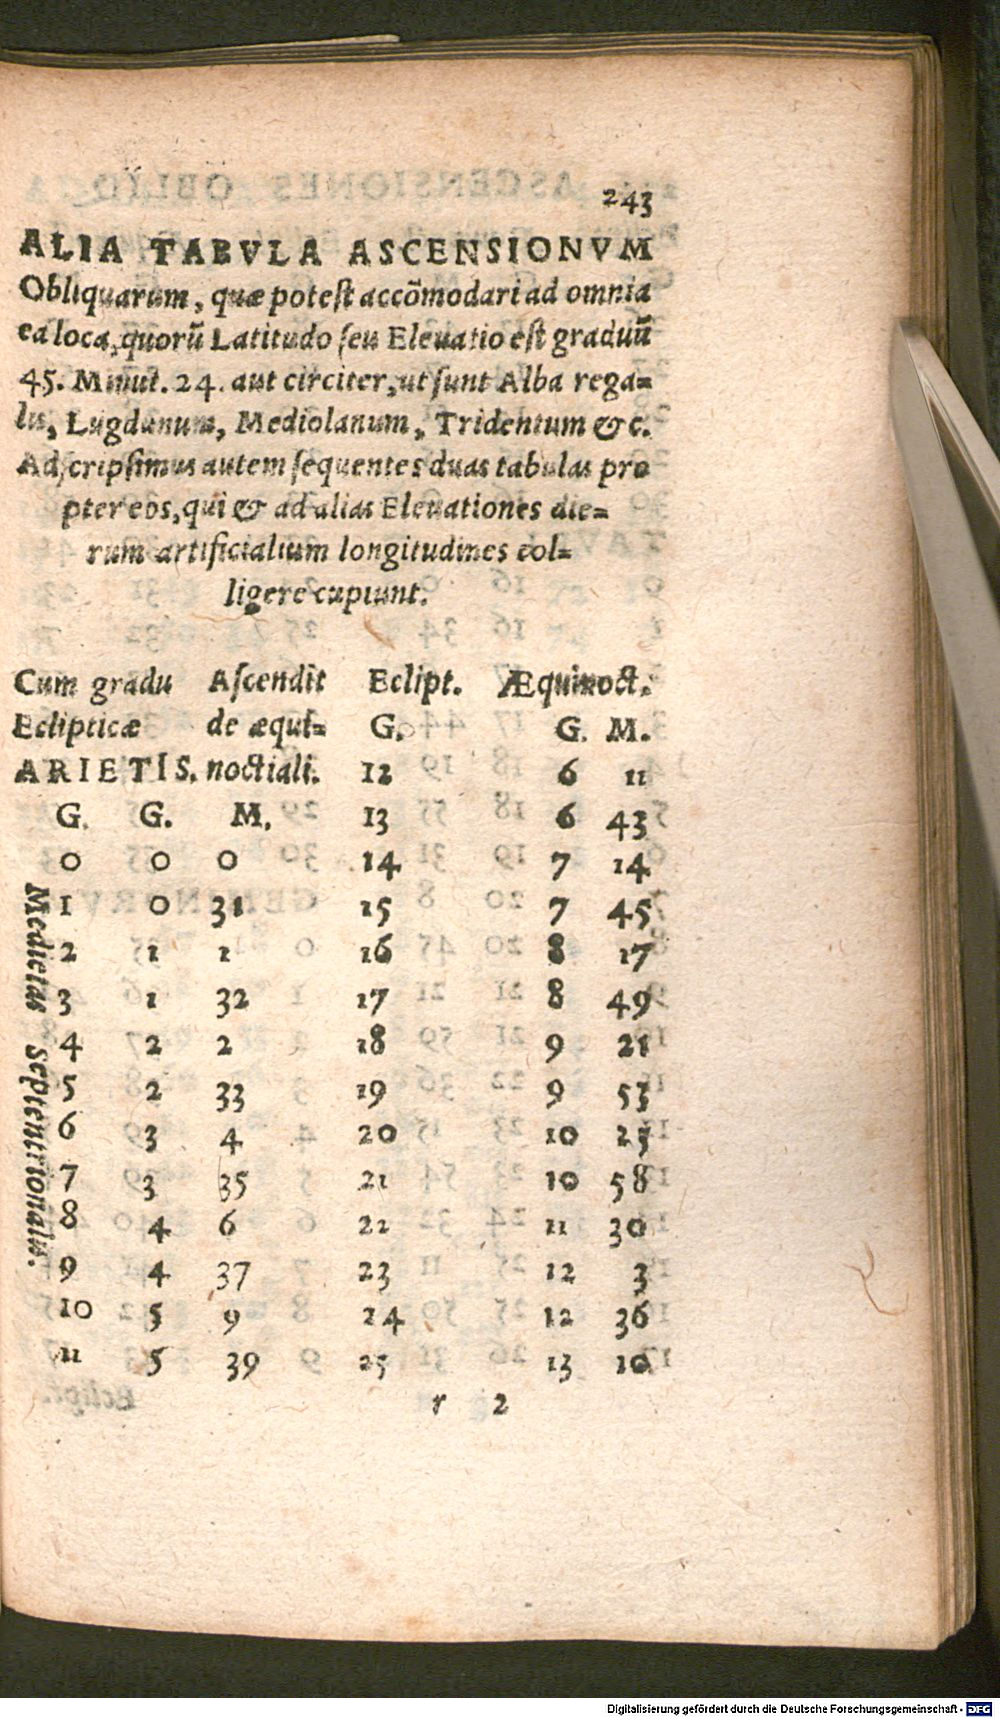 243
ALIA TABVLA ASCENSIONVM
Obliquarum, quæ potest accõmodari ad omnia
ea loca, quorũ Latitudo seu Eleuatio est graduũ
45. Minut. 24. aut circiter, ut sunt Alba rega=
lis, Lugdunum, Mediolanum, Tridentum & c.
Adscripsimus autem sequentes duas tabulas pro
pter eos, qui & ad alias Eleuationes die=
rum artificialium longitudines col=
ligere cupiunt.
Cum gradu Ascendit Eclipt. Æquinoct.
Eclipticæ de æqui= G. G. M.
ARIETIS. noctiali. 12 6 11
G. G. M. 13 6 43
0 0 0 14 7 14
1 0 31 15 7 45
2 1 1 16 8 17
3 1 32 17 8 49
4 2 2 18 9 21
5 2 33 19 9 53
6 3 4 20 10 23
7 3 35 21 10 58
8 4 6 22 11 30
9 4 37 23 12 3
10 5 9 24 12 36
11 5 39 25 13 10
Medietas septentrionalis.
r 2
Digitalisierung gefördert durch die Deutsche Forschungsgemeinschaft - DFG